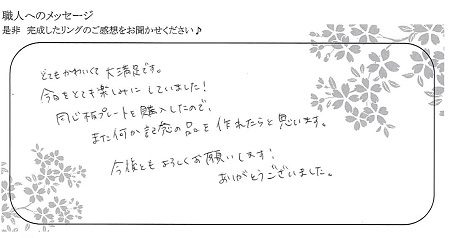 職人へのメッセージ
是非 完成したリングのご感想をお聞かせください♪
とてもかわいくて大満足です。
今日をとても楽しみにしていました！
同じ板プレートを購入したので、
また何か記念の品を作れたらと思います。
今後ともよろしくお願いします！
ありがとうございました。